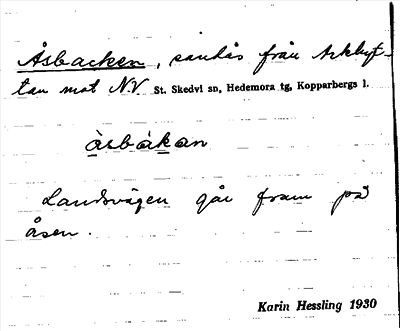 Åsbacken, sandås från Arkhyt-
tan mot N.V. St. Skedvi sn, Hedemora tg, Kopparbergs l.
åsbåkan
Landsvägen går fram på
åsen.
Karin Hessling 1930